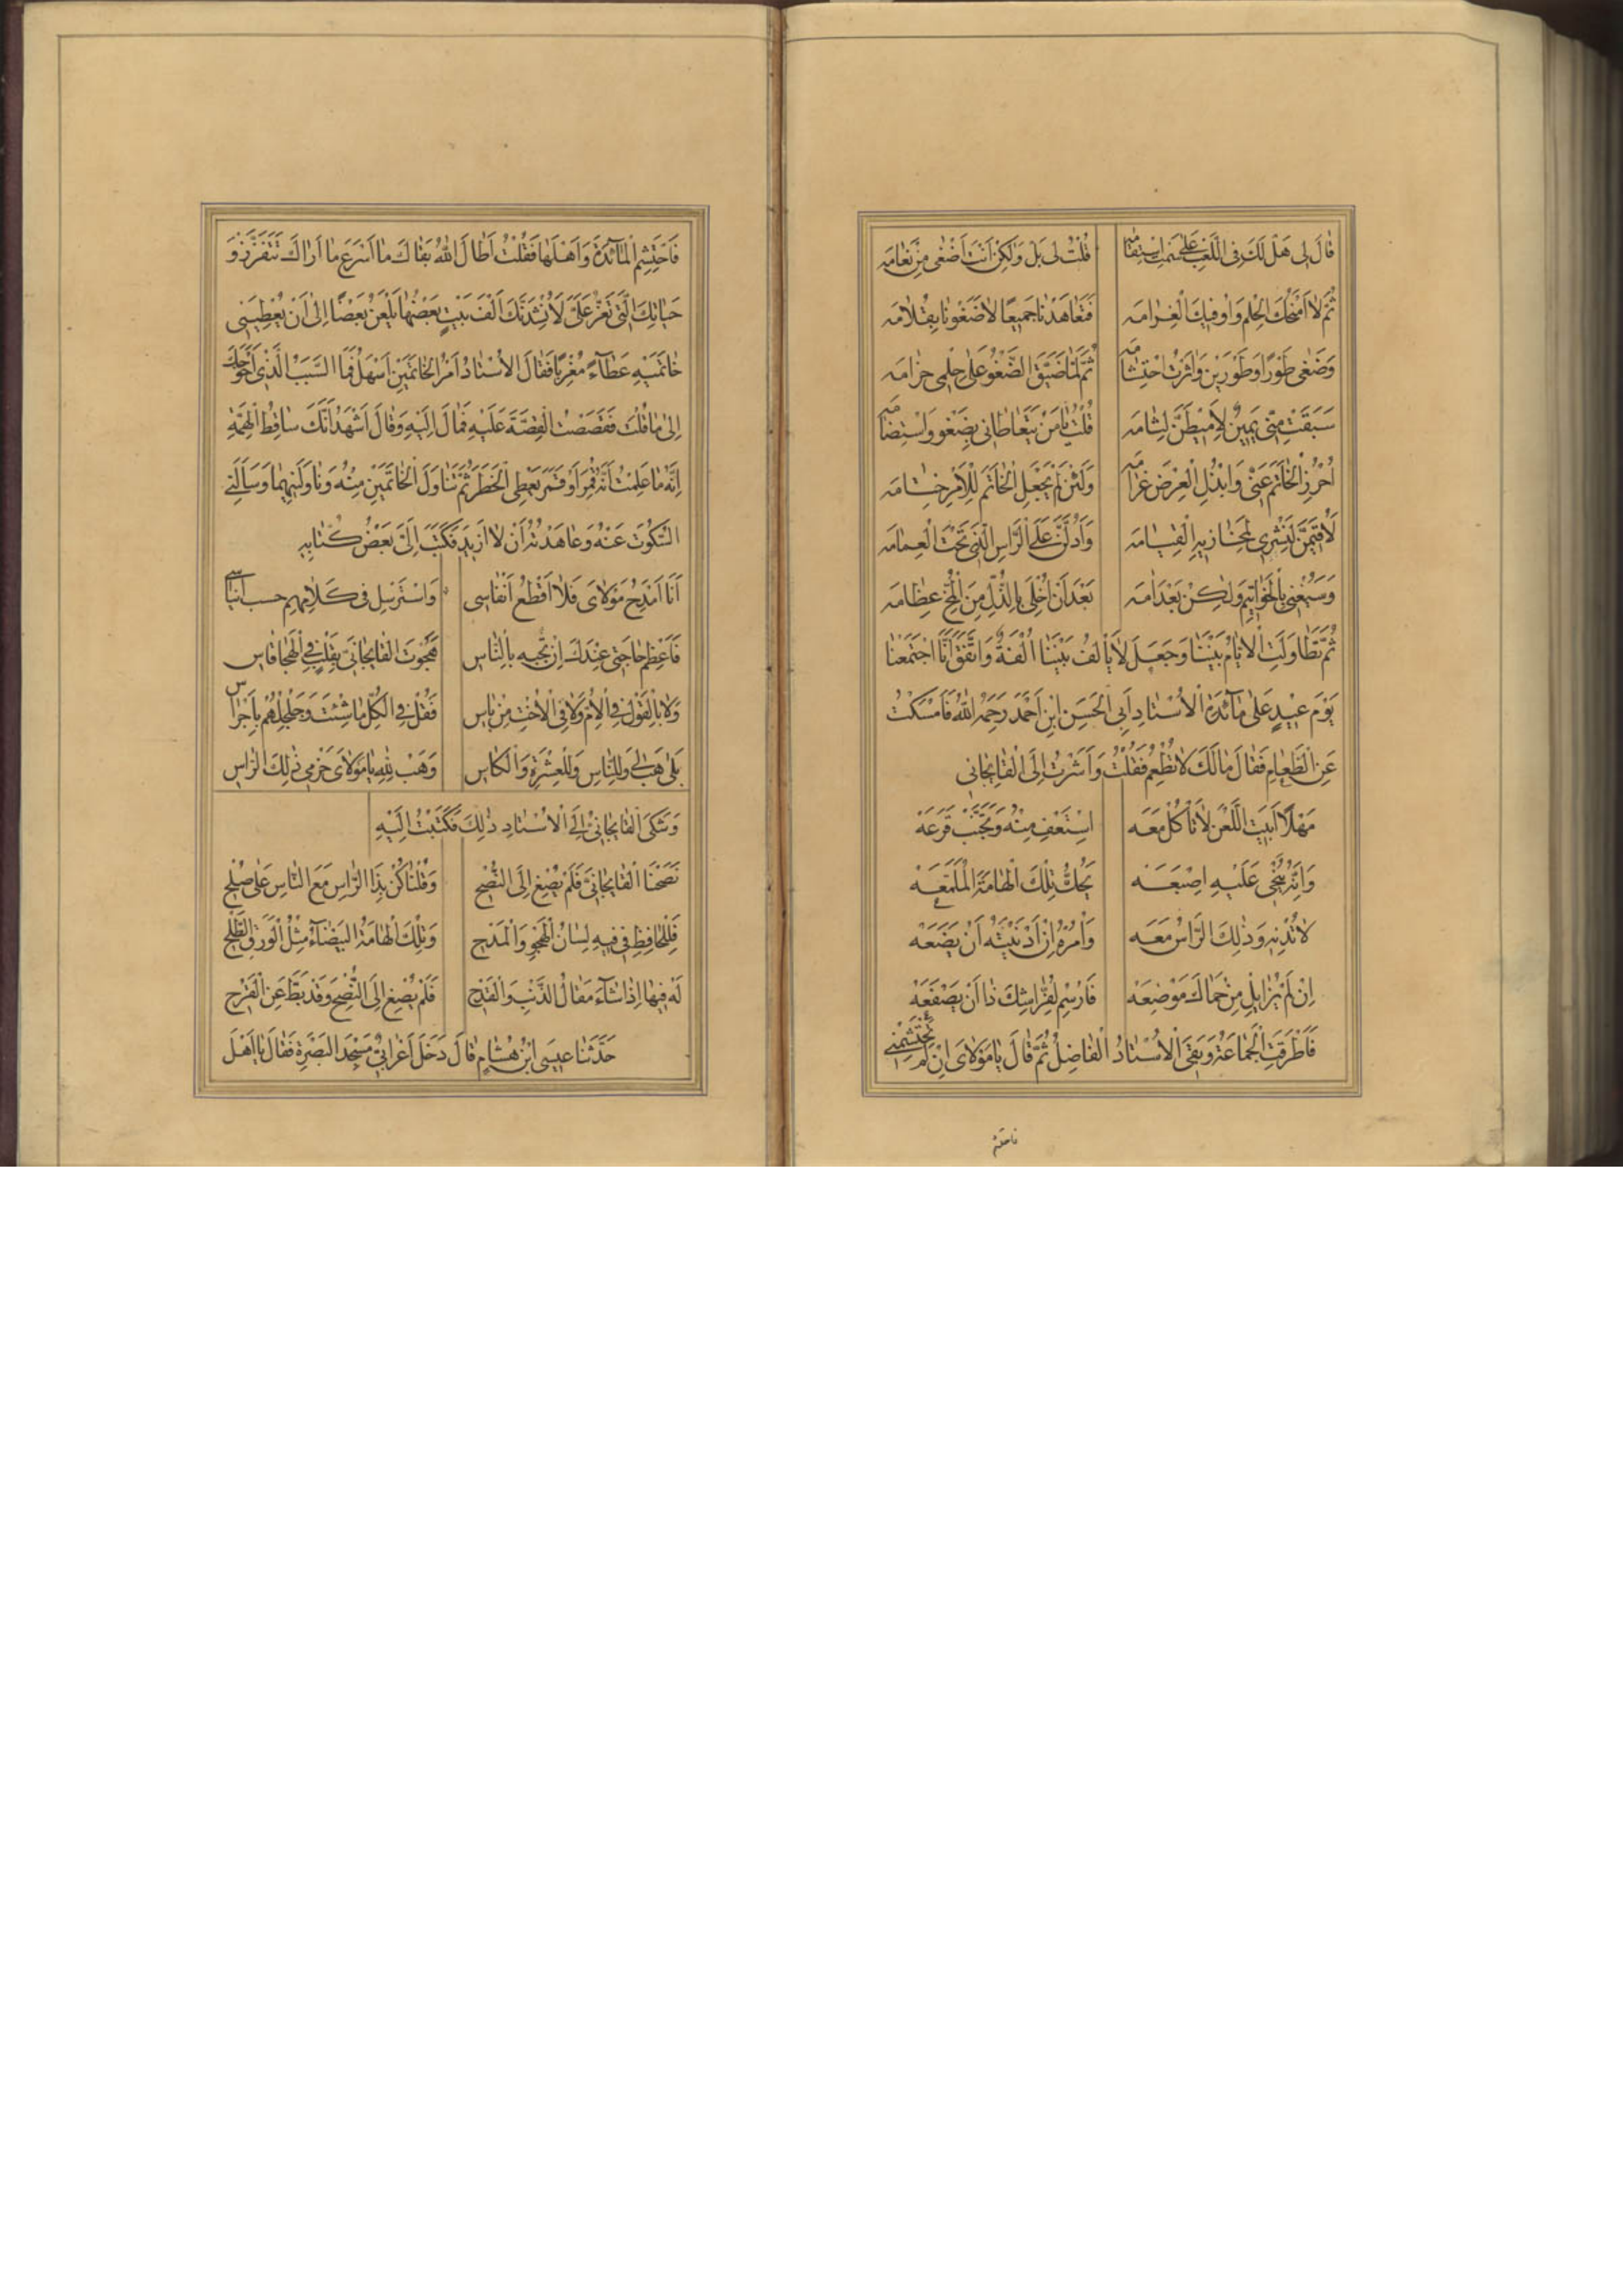 قَالَ لِی هَلْ لَكَ فِی اللَّعِبِ عَلَی اسْتِقَامَه قُلْتُ لِی بَلْ وَلٰكِنْ اَنْتَ اَضْغٰی مِنْ نَعَامَه
ثُمَّ لَا اَمْنَحُكَ الْحِلْمَ وَاُوفِيكَ الْغَرَامَه فَتَعَاهَدْنَا جَمِيعًا لَا ضَغَوْنَا بِقُلَامَه
وَضَغٰی طَوْرًا وَطَوْرَيْنِ وَاثَرْتُ احْتِشَامَه ثُمَّ لَمَّا ضَيَّقَ الضَّغْوُ عَلٰی حِلْمِی حِزَامَه
سَبَقَتْ مِنِّی يَمِينٌ لَاُمِيطَنَّ لِثَامَه قُلْتُ يَا مَنْ يَتَعَاطَانِی بِضَغْوٍ وَاسْتِضَامَه
اُحْرُزِ الْخَاتَمَ عَنِّی وَابْذُلِ الْعِرْضَ غَرَامَه وَلَئِنْ لَمْ يَجْعَلِ الْخَاتَمَ لِلْاَمْرِ خِتَامَه
لَاُقِيمَنَّ لِشِعْرِی لِمَخَازِيهِ الْقِيَامَه وَاَدُلَّنَّ عَلَی الرَّاسِ الَّذِی تَحْتَ الْعِمَامَه
وَسَيُعْنٰی بِالْخَوَاتِيمِ وَلٰكِنْ بَعْدَ امَه بَعْدَ اَنْ اُخْلِیَ بِالذُّلِّ مِنَ الْمُخِّ عِظَامَه
ثُمَّ تَطَاوَلَتِ الْاَيَّامُ بَيْنَنَا وَجَعَلَ لَا يَاْلَفُ بَيْنَنَا اُلْفَةٌ وَاتَّفَقَ اَنَّا اجْتَمَعْنَا
يَوْمَ عِيدٍ عَلٰی مَآئِدَةِ الْاُسْتَادِ اَبِی الْحَسَنِ ابْنِ اَحْمَدَ رَحِمَهُ اللّٰهُ فَاَمْسَكْتُ
عَنِ الطَّعَامِ فَقَالَ مَا لَكَ لَا تَطْعَمُ فَقُلْتُ وَاَشَرْتُ اِلَی الْقَايِجَانِی
مَهْلًا اَبَيْتَ اللَّعْنَ لَا تَاْكُلْ مَعَه اِسْتَعْفِ مِنْهُ وَتَجَنَّبْ قَرَعَه
وَاِنَّهُ يُنْحِی عَلَيْهِ اِصْبَعَه يَحُكُّ تِلْكَ الْهَامَةَ الْمُلَمَّعَه
لَا تُدْنِهِ وَذٰلِكَ الرَّاسُ مَعَه وَاْمُرْهُ اِنْ اَدْنَيْتَهُ اَنْ يَضَعَه
اِنْ لَمْ يُزَايِلْ مِنْ حِمَاكَ مَوْضِعَه فَارْسِمْ لِفَرَّاشِكَ ذَا اَنْ يَصْفَعَه
فَاَطْرَقَتِ الْجَمَاعَةُ وَبَقِیَ الْاُسْتَادُ الْفَاضِلُ ثُمَّ قَالَ يَا مَوْلَایَ اِنْ لَمْ تَحْتَشِمْنِی
فاحتشم
فَاحْتَشِمِ الْمَآئِدَةَ وَاَهْلَهَا فَقُلْتُ اَطَالَ اللّٰهُ بَقَاكَ مَا اَسْرَعَ مَا اَرَاكَ تَتَفَزَّزُ وَ
حَيَاتِكَ الَّتِی تَعِزُّ عَلَیَّ لَاُنْشِدَنَّكَ اَلْفَ بَيْتٍ بَعْضُهَا يَلْعَنُ بَعْضًا اِلٰی اَنْ يُعْطِيَنِی
خَاتَمَيْهِ عَطَآءً مُغْرِبًا فَقَالَ الْاُسْتَادُ اَمْرُ الْخَاتَمَيْنِ اَسْهَلُ فَمَا السَّبَبُ الَّذِی اَحْوَجَكَ
اِلٰی مَا قُلْتَ فَقَصَصْتُ الْقِصَّةَ عَلَيْهِ فَمَالَ اِلَيْهِ وَقَالَ اَشْهَدُ اَنَّكَ سَاقِطُ الْهِمَّةِ
اِنَّهُ مَا عَلِمْتُ اَنَّهُ قُمِرَ اَوْ قَمَرَ يُعْطِی الْخَطَرَ ثُمَّ تَنَاوَلَ الْخَاتَمَيْنِ مِنْهُ وَنَاوَلَنِيهِمَا وَسَاَلَنِی
السُّكُوتَ عَنْهُ وَعَاهَدْتُهُ اَنْ لَا اَزِيدَ فَكَتَبَ اِلَیَّ بَعْضُ كُتَّابِهِ
اَنَا اَمْدَحُ مَوْلَایَ فَلَا اَقْطَعُ اَنْفَاسِی وَاسْتَرْسِلْ فِی كَلَامِهِم حسب
فَاَعْظِمْ حَاجَتِی عِنْدَكَ اِنْ تُجْبِهِ بِالنَّاسِ هَجَوْتَ الْقَايِجَانِیَّ بِقَلْبٍ فِی الْهِجَا قَاسِ
وَلَا بِالْقَوْلِ فِی الْاُمِّ وَلَا فِی الْاُخْتِ مِنْ بَاسِ فَقُلْ فِی الْكُلِّ مَا شِئْتَ وَجَلْجِلْهُمْ بِاَجْرَاسِ
بَلٰی هَبْ لِی وَلِلنَّاسِ وَلِلْعِشْرَةِ وَالْكَاسِ وَهَبْ لِلّٰهِ يَا مَوْلَایَ حَزْمِی ذٰلِكَ الرَّاسِ
وَشَكَی الْقَايِجَانِیُّ اِلَی الْاُسْتَادِ ذٰلِكَ فَكَتَبْتُ اِلَيْهِ
نَصَحْنَا الْقَايِجَانِیَّ فَلَمْ يُصْغِ اِلَی النُّصْحِ وَقُلْنَا كُنْ بِذَا الرَّاسِ مَعَ النَّاسِ عَلٰی صُلْحِ
فَلِلْحَافِظِ فِی فِيهِ لِسَانُ الْهَجْوِ وَالْمَدْحِ وَتِلْكَ الْهَامَةُ الْبَيْضَآءُ مِثْلُ الْوَرَقِ الطَّلْحِ
لَهُ فِيهَا اِذَا شَآءَ مَقَالُ الذَّنْبِ وَالْقَدْحِ فَلَمْ يُصْغِ اِلَی النُّصْحِ وَقَدْ بَطَّ عَنِ الْقَرْحِ
حَدَّثَنَا عِيسَی ابْنُ هِشَامٍ قَالَ دَخَلَ اَعْرَابِیٌّ مَسْجِدَ الْبَصْرَةِ فَقَالَ يَا اَهْلَ